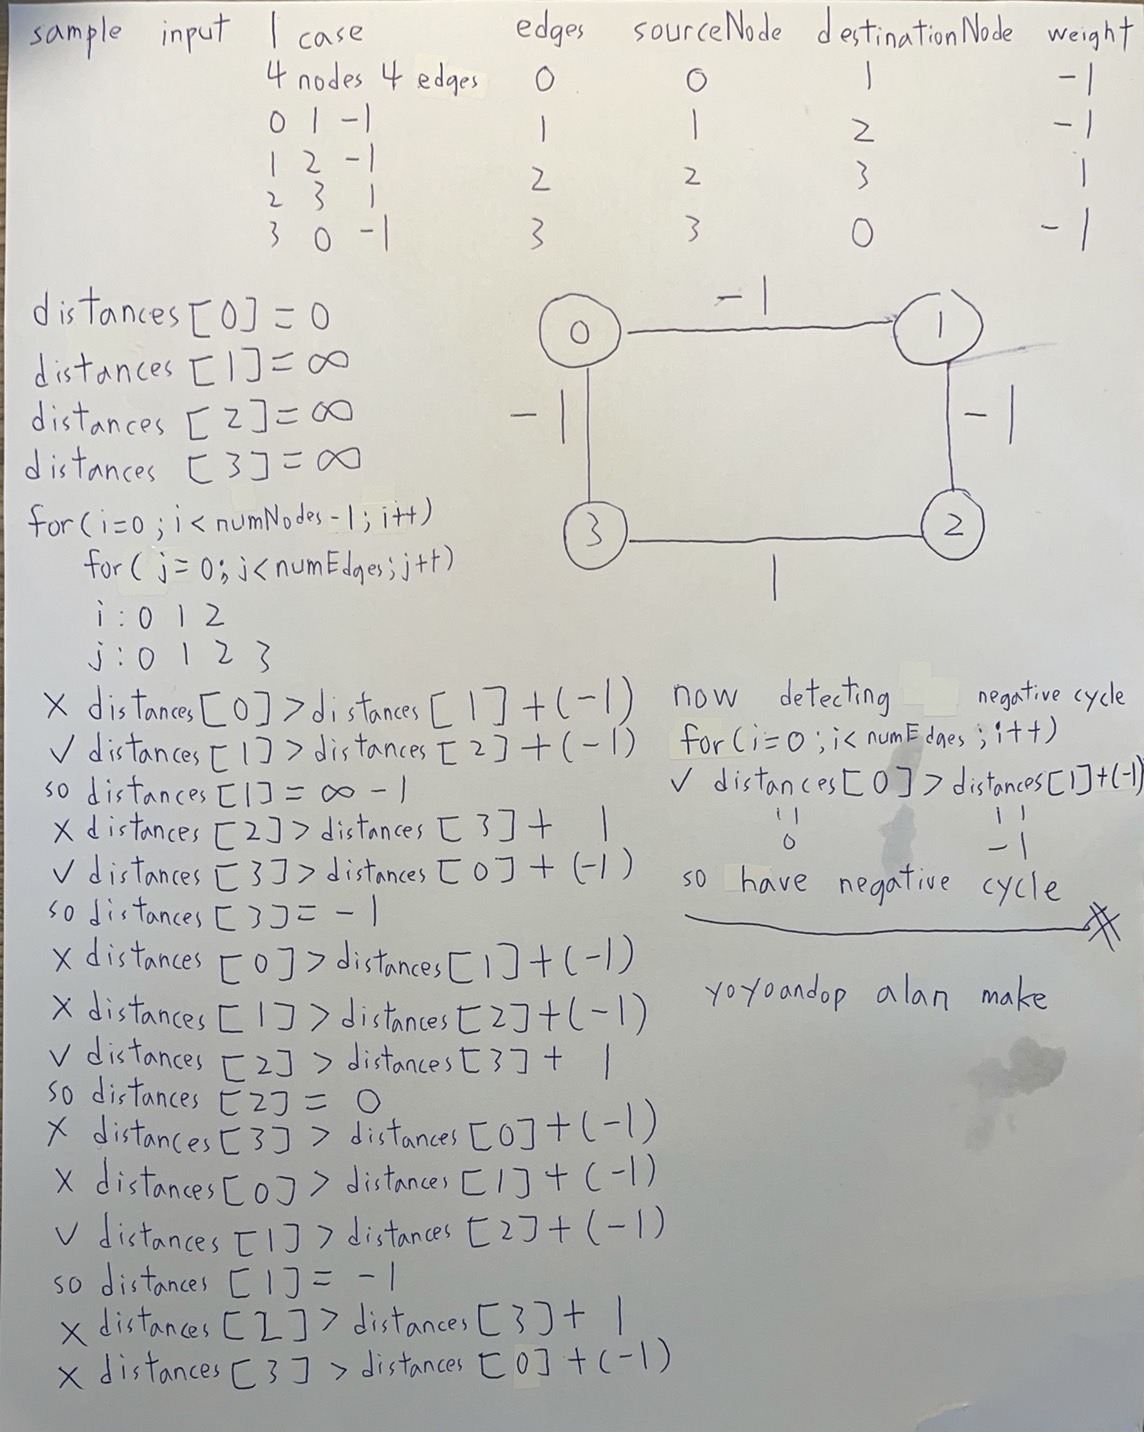 sample input 1 case
4 nodes 4 edges
0 1 -1
1 2 -1
2 3 1
3 0 -1
edges sourceNode destinationNode weight
0 0 1 -1
1 1 2 -1
2 2 3 1
3 3 0 -1
distances[0]=0
distances[1]=∞
distances[2]=∞
distances[3]=∞
0 -1 1
-1 -1
3 1 2
for(i=0;i<numNodes-1;i++)
for(j=0;j<numEdges;j++)
i:0 1 2
j:0 1 2 3
x distances[0]>distances[1]+(-1)
√ distances[1]>distances[2]+(-1)
so distances[1]=∞-1
x distances[2]>distances[3]+ 1
√ distances[3]>distances[0]+(-1)
so distances[3]=-1
x distances[0]>distances[1]+(-1)
x distances[1]>distances[2]+(-1)
√ distances[2]>distances[3]+ 1
so distances[2]= 0
x distances[3]>distances[0]+(-1)
x distances[0]>distances[1]+(-1)
√ distances[1]>distances[2]+(-1)
so distances[1]=-1
x distances[2]>distances[3]+ 1
x distances[3]>distances[0]+(-1)
now detecting negative cycle
for(i=0;i<numEdges;i++)
√ distances[0]>distances[1]+(-1)
11 11
0 -1
so have negative cycle
yoyoandop alan make